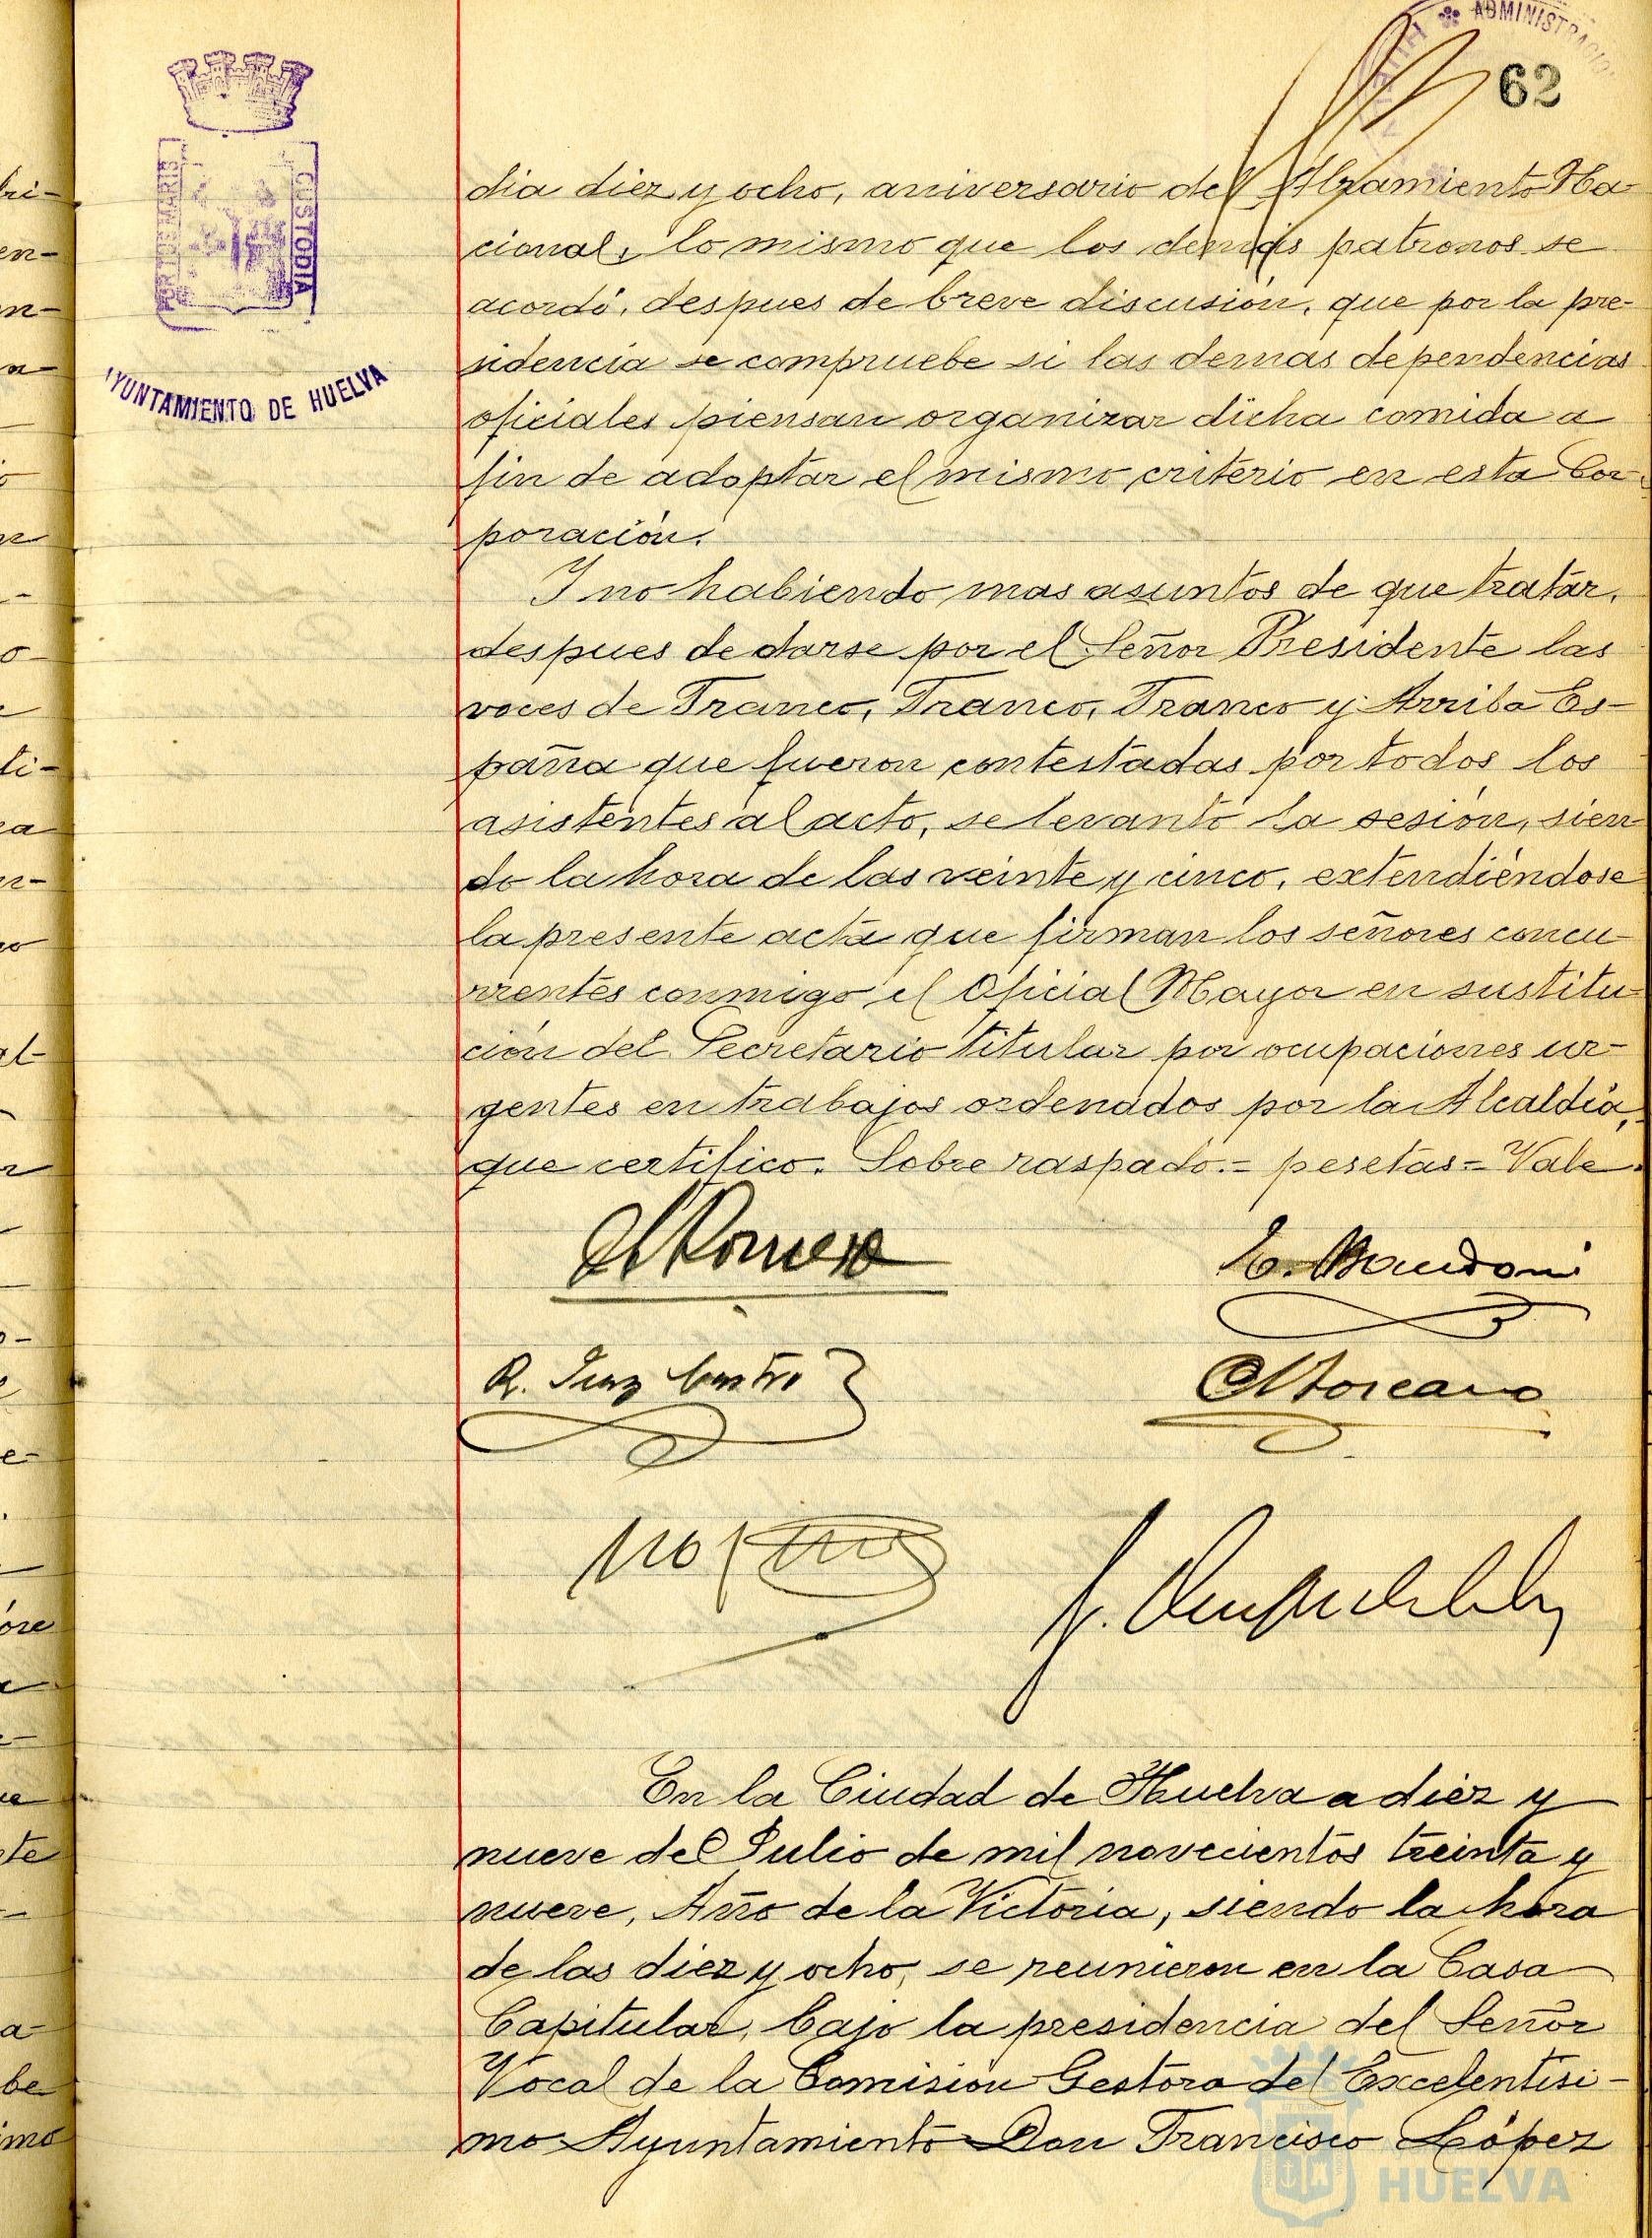 ADMINISTRACION
62
PORTUS MARIS
CUSTODIA
AYUNTAMIENTO DE HUELVA
dia diez y ocho, aniversario del Alzamiento Na-
cional, lo mismo que los demás patronos se
acordó, despues de breve discusión, que por la pre-
sidencia se compruebe si las demas dependencias
oficiales piensan organizar dicha comida a
fin de adoptar el mismo criterio en esta Cor-
poración.
Y no habiendo mas asuntos de que tratar,
despues de darse por el Señor Presidente las
voces de Franco, Franco, Franco y Arriba Es-
paña que fueron contestadas por todos los
asistentes al acto, se levantó la sesión, sien-
do la hora de las veinte y cinco, extendiéndose
la presente acta que firman los señores concu-
rrentes conmigo el Oficial Mayor en sustitu-
ción del Secretario titular por ocupaciones ur-
gentes en trabajos ordenados por la Alcaldía,
que certifico. Sobre raspado.= pesetas= Vale.
Romero
E.
R. Diaz Castro
En la Ciudad de Huelva a diez y
nueve de Julio de mil novecientos treinta y
nueve, Año de la Victoria, siendo la hora
de las diez y ocho, se reunieron en la Casa
Capitular, bajo la presidencia del Señor
Vocal de la Comisión Gestora del Excelentisi-
mo Ayuntamiento Don Francisco López
HUELVA